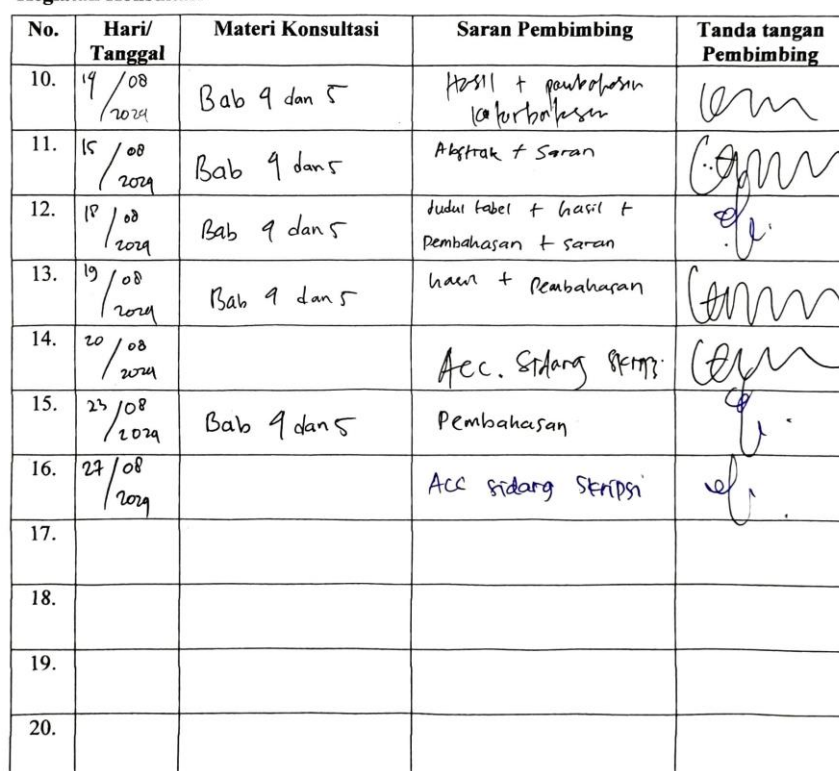 No. Hari/ Tanggal Materi Konsultasi Saran Pembimbing Tanda tangan Pembimbing
10. 14/08/2024 Bab 4 dan 5 Hasil + pembahasan
11. 15/08/2024 Bab 4 dan 5 Abstrak + Saran
12. 18/08/2024 Bab 4 dan 5 Judul tabel + hasil +
Pembahasan + saran
13. 19/08/2024 Bab 4 dan 5 hasil + Pembahasan
14. 20/08/2024 Acc. Sidang Skripsi
15. 23/08/2024 Bab 4 dan 5 Pembahasan
16. 27/08/2024 Acc sidang Skripsi
17.
18.
19.
20.